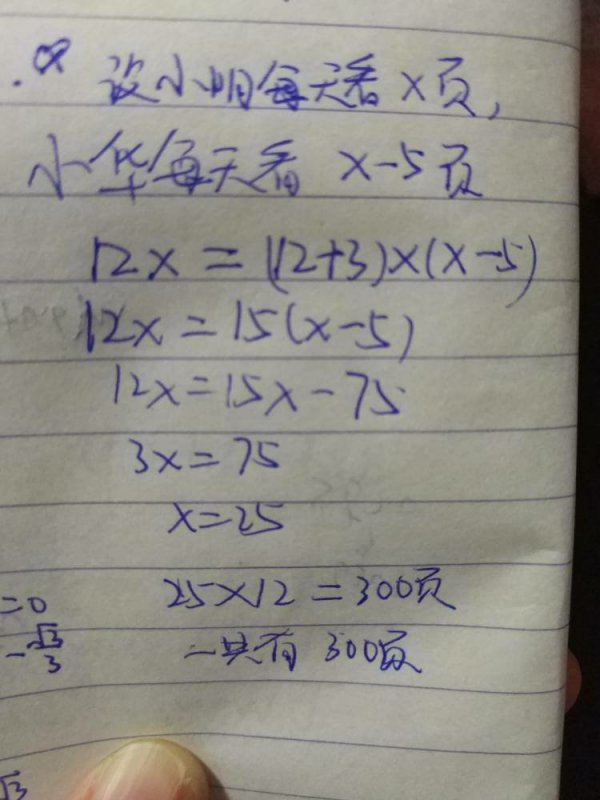 设小明每天看x页,
小华每天看 x-5页
12x=(12+3)×(x-5)
12x=15(x-5)
12x=15x-75
3x=75
x=25
25×12=300页
一共有 300页
=0
-√3/3
√3